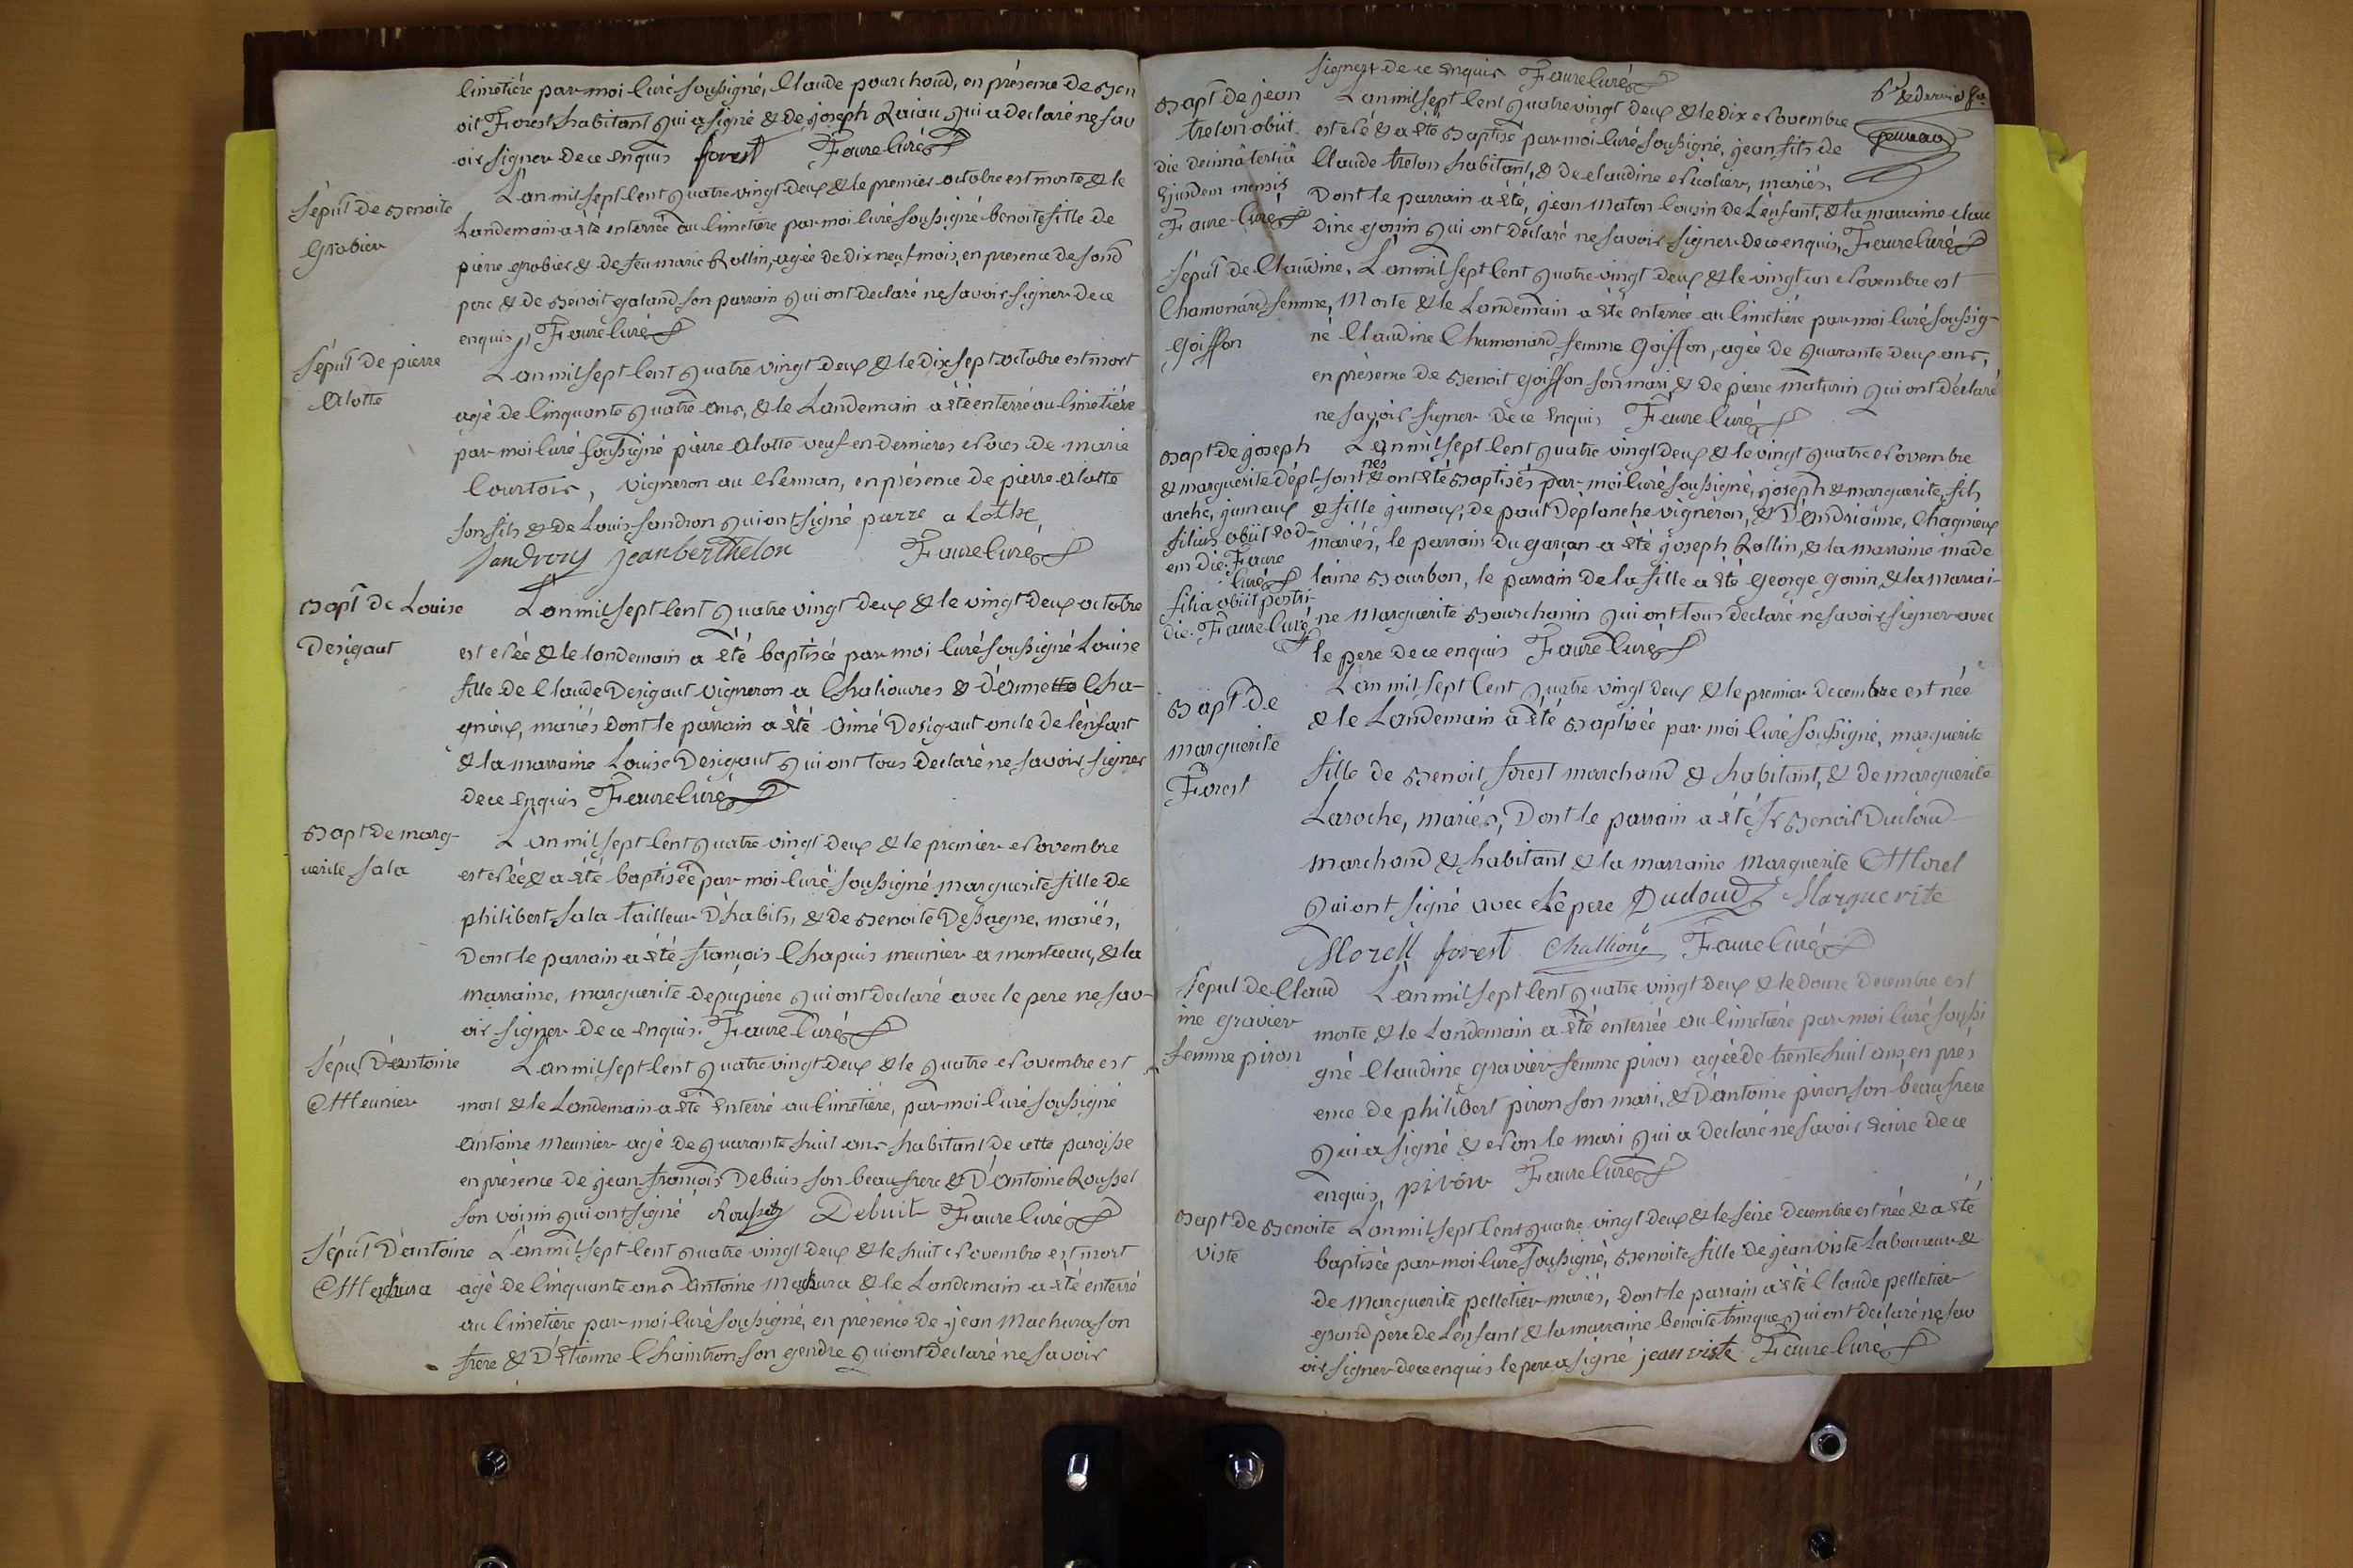 Cimetiére par moi Curé soussigné, Claude pourchoud, en présence de Ben
oit Forest habitant qui a signé & de joseph Raiau qui a declaré ne sav
oir signer de ce enquis forest Faure Curé
Sépult de Benoite
Grobier
L'an mil sept Cent quatre vingt deux & le premier octobre est morte & le
Landemain a été enterrée au Cimetiere par moi Curé soussigné benoite fille de
pierre grobier & de feu marie Rollin, agée de dix neuf mois, en presence de sond
pere & de Benoit galand son parrain qui ont declaré ne savoir signer de ce
enquis, Faure Curé
Sépult de pierre
Alotte
L'an mil sept Cent quatre vingt deux & le dix sept octobre est mort
agé de Cinquante quatre ans, & le Landemain a été enterré au Cimetiére
par moi Curé soussigné pierre Alotte veuf en dernieres Noces de marie
Courtois, vigneron au Nerman, en présence de pierre Alotte
son fils & de Louis sandron qui ont signé pierre a Lothe
sandrong jean berthelon Faure Curé
Bapt de Louise
Desigaut
L'an mil sept Cent quatre vingt deux & le vingt deux octobre
est Née & le landemain a été baptisée par moi Curé soussigné Louise
fille de Claude Desigaut vigneron a Chaliouvres & d'anne Cha-
gnieux, mariés dont le parrain a été Aimé Desigaut oncle de l'enfant
& la marraine Louise Desigaut qui ont tous declaré ne savoir signer
de ce enquis Faure Curé
Bapt de marg-
uerite sala
L'an mil sept Cent quatre vingt deux & le premier Novembre
est Née & a été baptisée par moi Curé soussigné marguerite fille de
philibert sala tailleur d'habits, & de Benoite Dessagne, mariés,
Dont le parrain a été françois Chapuis meunier a monteau, & la
marraine, marguerite depupiere qui ont declaré avec le pere ne sav-
oir signer de ce enquis. Faure Curé
Sépult d'antoine
Meunier
L'an mil sept Cent quatre vingt deux & le quatre Novembre est
mort & le Landemain a été enterré au Cimetiére, par moi Curé soussigné
antoine meunier agé de quarante huit ans habitant de cette paroisse
en présence de jean françois Debuis son beau frere & D'Antoine Roussel
son voisin qui ont signé Debuit Faure Curé
Sépult D'antoine
Machura
L'an mil sept Cent quatre vingt deux & le huit Novembre est mort
agé de Cinquante ans Antoine Machura & le Landemain a été enterré
au Cimetiére par moi Curé soussigné, en présence de jean Machura son
frere & D'Etienne Chaintron son gendre qui ont declaré ne savoir
signer de ce enquis Faure Curé
Bapt de jean
treton obiit
die decimâ tertiâ
Ejusdem mensis
Faure Curé
L'an mil sept Cent quatre vingt deux & le dix Novembre
est Né & a été Baptisé par moi Curé soussigné, jean fils de
Claude treton habitant, & de claudine Nicolier, mariés,
Dont le parrain a été, jean Maton Cousin de L'enfant, & la marraine clau
dine gonin qui ont declaré ne savoir signer de ce enquis, Faure Curé
Sépult de Claudine
Chamonard femme
goiffon
L'an mil sept Cent quatre vingt deux & le vingt un Novembre est
Morte & le Landemain a été enterrée au Cimetiére par moi Curé soussig-
né Claudine Chamonard femme Goiffon, agée de quarante deux ans,
en présence de Benoit goiffon son mari, & de pierre maturin qui ont déclaré
ne savoir signer de ce enquis Faure Curé
Bapt de joseph
& marguerite dépl-
anche, jumeaux
filius obiit eod-
em die. Faure
Curé
filia obiit postri-
die. Faure Curé
L'an mil sept Cent quatre vingt deux & le vingt quatre Novembre
sont nés & ont été Baptisés par moi Curé soussigné, joseph & marguerite, fils
& fille jumeaux, de paul Déplanche vigneron, & D'Andrianne, Chagnieux
mariés, le parrain du garçan a été joseph Rollin, & la marraine made
laine Bourbon, le parrain de la fille a été george gonin, & la marrai-
ne Marguerite Bourchanin qui ont tous declaré ne savoir signer avec
le pere de ce enquis Faure Curé
Bapt de
marguerite
Forest
L'an mil sept Cent quatre vingt deux & le premier decembre est née
& le Landemain a été Baptisée par moi Curé soussigné, marguerite
fille de Benoit forest marchand & habitant, & de marguerite
Laroche, mariés, Dont le parrain a été sr Benoit Dudoud
marchand & habitant & la marraine marguerite Morel
qui ont signé avec Le pere Dudoud Marguerite
Morell forest Challiou Faure Curé
Sepult de Claud
ine gravier
femme piron
L'an mil sept Cent quatre vingt deux & le douze decembre est
morte & le Landemain a été enterrée au Cimetiére par moi Curé soussi
gné Claudine gravier femme piron agée de trente huit ans, en prés
ence de philibert piron son mari, & D'antoine piron son beau frere
qui a signé & Non le mari qui a declaré ne savoir Ecrire de ce
enquis, piron Faure Curé
Bapt de Benoite
viste
L'an mil sept Cent quatre vingt deux & le seize decembre est née & a été
baptisée par moi Curé soussigné, Benoite fille de jean viste Laboureur &
de marguerite pelletier mariés, dont le parrain a été Claude pelletier
grand pere de L'enfant & la marraine benoite trinque qui ont declaré ne sav
oir signer de ce enquis le pere a signé jean viste Faure Curé